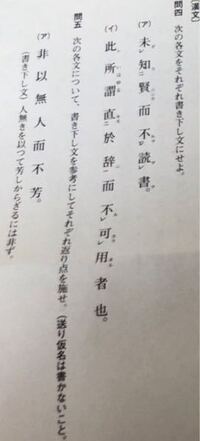 〔漢文〕
問四 次の各文をそれぞれ書き下し文にせよ。
(ア) 未知賢而不読書。
(イ) 此所謂直於辞而不可用者也。
問五 次の各文について、書き下し文を参考にしてそれぞれ返り点を施せ。(送り仮名は書かないこと。)
(ア) 非以無人而不芳。
(書き下し文) 人無きを以つて芳しからざるには非ず。